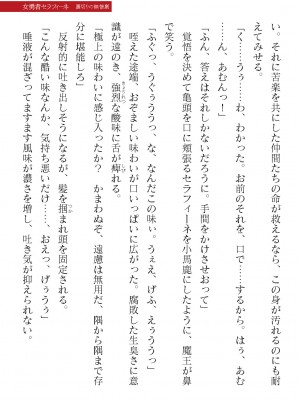 女勇者セラフィーネ 裏切りの
い。それに苦楽を共にした仲間たちの命が救えるなら、この身が汚れるのにも耐
えてみせる。
「く……うぅ……わ、わかった。お前のそれを、口で……するから。はぅ、あむ
……ん、あむんっ！」
「ふん、答えはそれしかないだろうに。手間をかけさせおって」
覚悟を決めて亀頭を口に頬張るセラフィーネを小馬鹿にしたように、魔王が鼻
で笑う。
「ふぐっ、うぐぅううっ、な、なんだこの味ぃ。うぇえ、げふ、えぅううっ」
咥えた途端、おぞましい味わいが口いっぱいに広がった。腐敗した生臭さに意
識が遠のき、強烈な酸味に舌が痺れる。
「極上の味わいに感じ入ったか？　かまわぬぞ、遠慮は無用だ、隅から隅まで存
分に堪能しろ」
反射的に吐き出しそうになるが、髪を掴まれ頭を固定される。
「こんな酷い味なんか、気持ち悪いだけ……、おえっ、げぅうぅ」
唾液が混ざってますます風味が濃さを増し、吐き気が抑えられない。